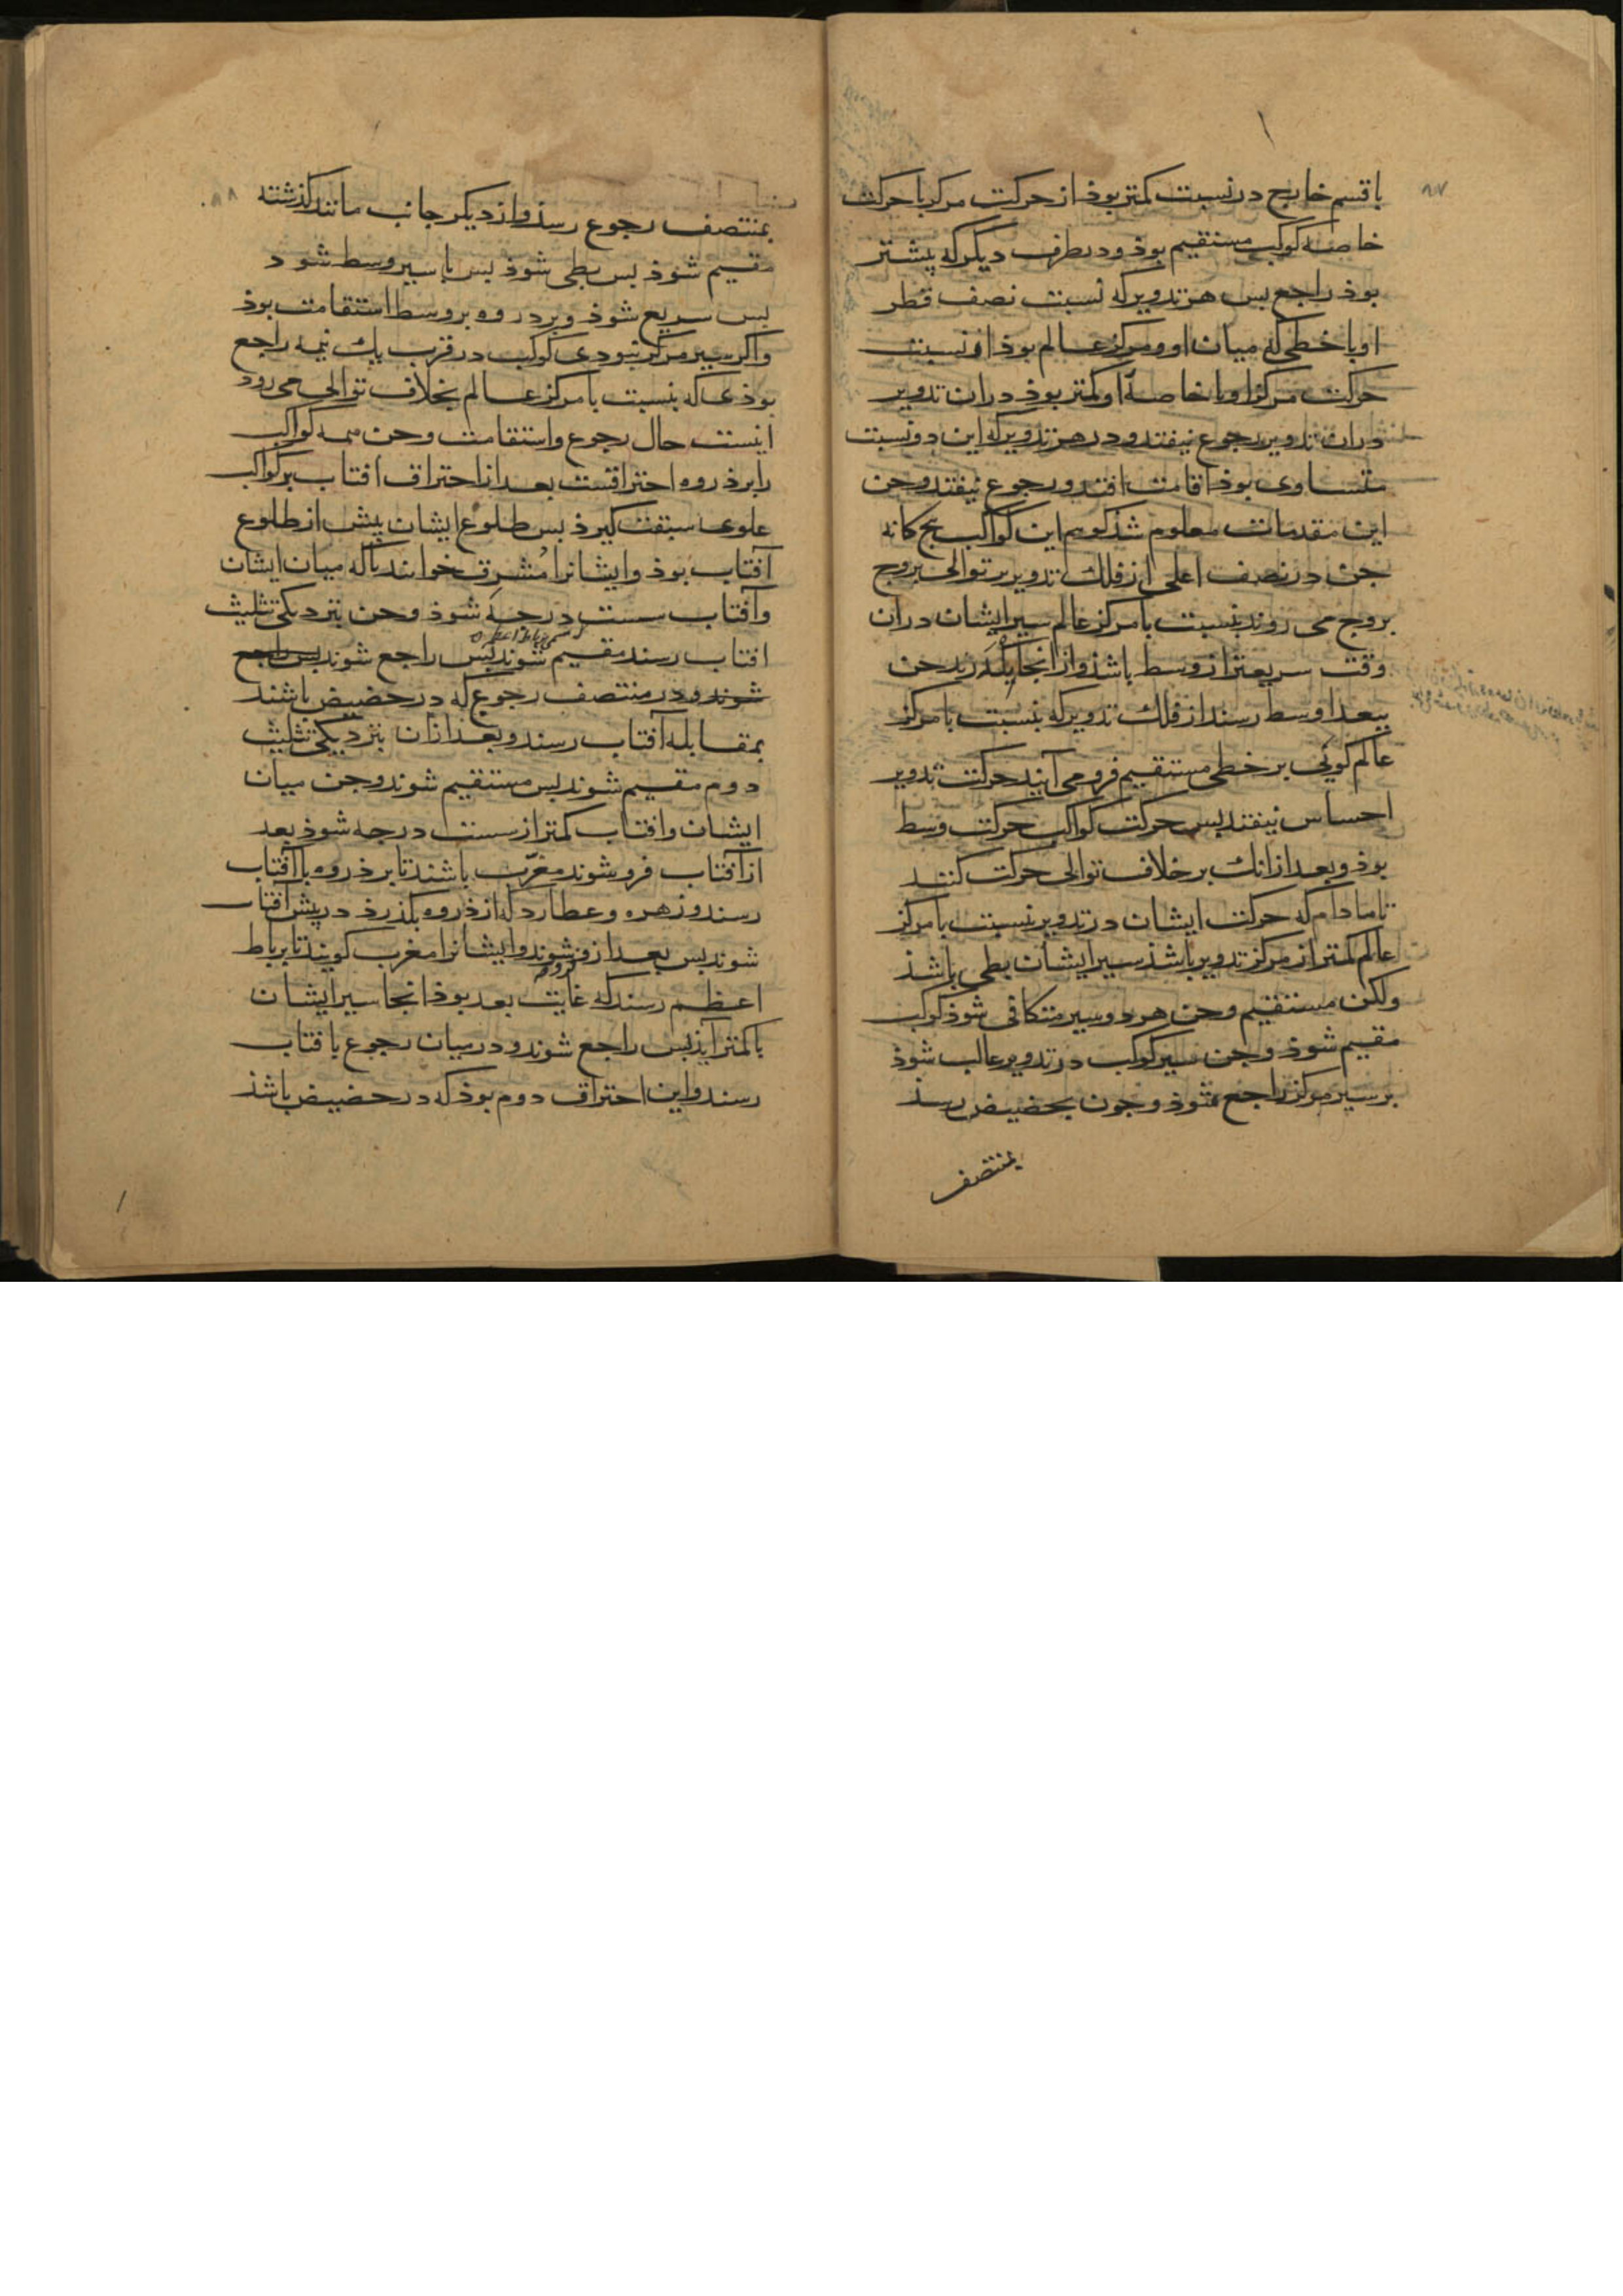 ۸۷
با قسم خارج در نسبت کمتر بوذ از حرکت مرکز با حرکت
خاصه کوکب مستقیم بوذ و در طرف دیکر که بیشتر
بوذ راجع بس هر تدویر که نسبت نصف قطر
او با خطی که میان او و مرکز عالم بوذ از نسبت
حرکت مرکز او با خاصه او کمتر بوذ دران تدویر
دران تدویر رجوع نیفتد و در هر تدویر که این دو نسبت
متساوی بوذ اقامت افتد و رجوع نیفتد و جن
این مقدمات معلوم شد کوییم این کواکب بنج کانه
جن در نصف اعلی از فلک تدویر بر توالی بروج
بروج می روند بنسبت با مرکز عالم سیر ایشان دران
وقت سریعتر از وسط باشذ و از انجا بکذرند جن
ببعد اوسط رسند از فلک تدویر که بنسبت با مرکز
عالم کوئی بر خطی مستقیم فرو می آیند حرکت تدویر
احساس نیفتد بس حرکت کواکب حرکت وسط
بوذ و بعد ازانک بر خلاف توالی حرکت کنند
تا مادام که حرکت ایشان در تدویر بنسبت با مرکز
عالم کمتر از مرکز تدویر باشذ سیر ایشان بطی باشذ
ولکن مستقیم و جن هر دو سیر متکافی شوذ کوکب
مقیم شوذ و جن سیر کوکب در تدویر غالب شوذ
بر سیر مرکز راجع شوذ و جون بحضیض رسذ
بمنتصف
۸۸
بمنتصف رجوع رسذ و از دیکر جانب مانند کذشته
مقیم شوذ بس بطی شوذ بس با سیر وسط شود
بس سریع شوذ و بر ذروه بر وسط استقامت بوذ
و اکر سیر مرکز نبودی کوکب در قرب یک نیمه راجع
بوذی که بنسبت با مرکز عالم بخلاف توالی می رود
اینست حال رجوع و استقامت و جن همه کواکب
را بر ذروه احتراقست بعد از احتراق افتاب بر کواکب
علوی سبقت کیرذ بس طلوع ایشان پیش از طلوع
آفتاب بوذ و ایشانرا مُشرق خوانند تا که میان ایشان
و آفتاب شست درجه شوذ و جن بنزدیکی تثلیث
افتاب رسند مقیم شوند بس راجع شوند بس راجع
شوند و در منتصف رجوع که در حضیض باشند
بمقابله آفتاب رسند و بعد ازان بنزدیکی تثلیث
دوم مقیم شوند بس مستقیم شوند و جن میان
ایشان و افتاب کمتر از شست درجه شوذ بعد
از آفتاب فرو شوند مغرّب باشند تا بر ذروه با آفتاب
رسند و زهره و عطارد که از ذروه بکذرذ در پیش آفتاب
شوند بس بعد ازو فرو شوند و ایشانرا مغرب کویند تا برباط
اعظم رسند که غایت بعد بوذ انجا سیر ایشان
با کمتر آیذ بس راجع شوند و در میان رجوع با فتاب
رسند و این احتراق دوم بوذ که در حضیض باشذ